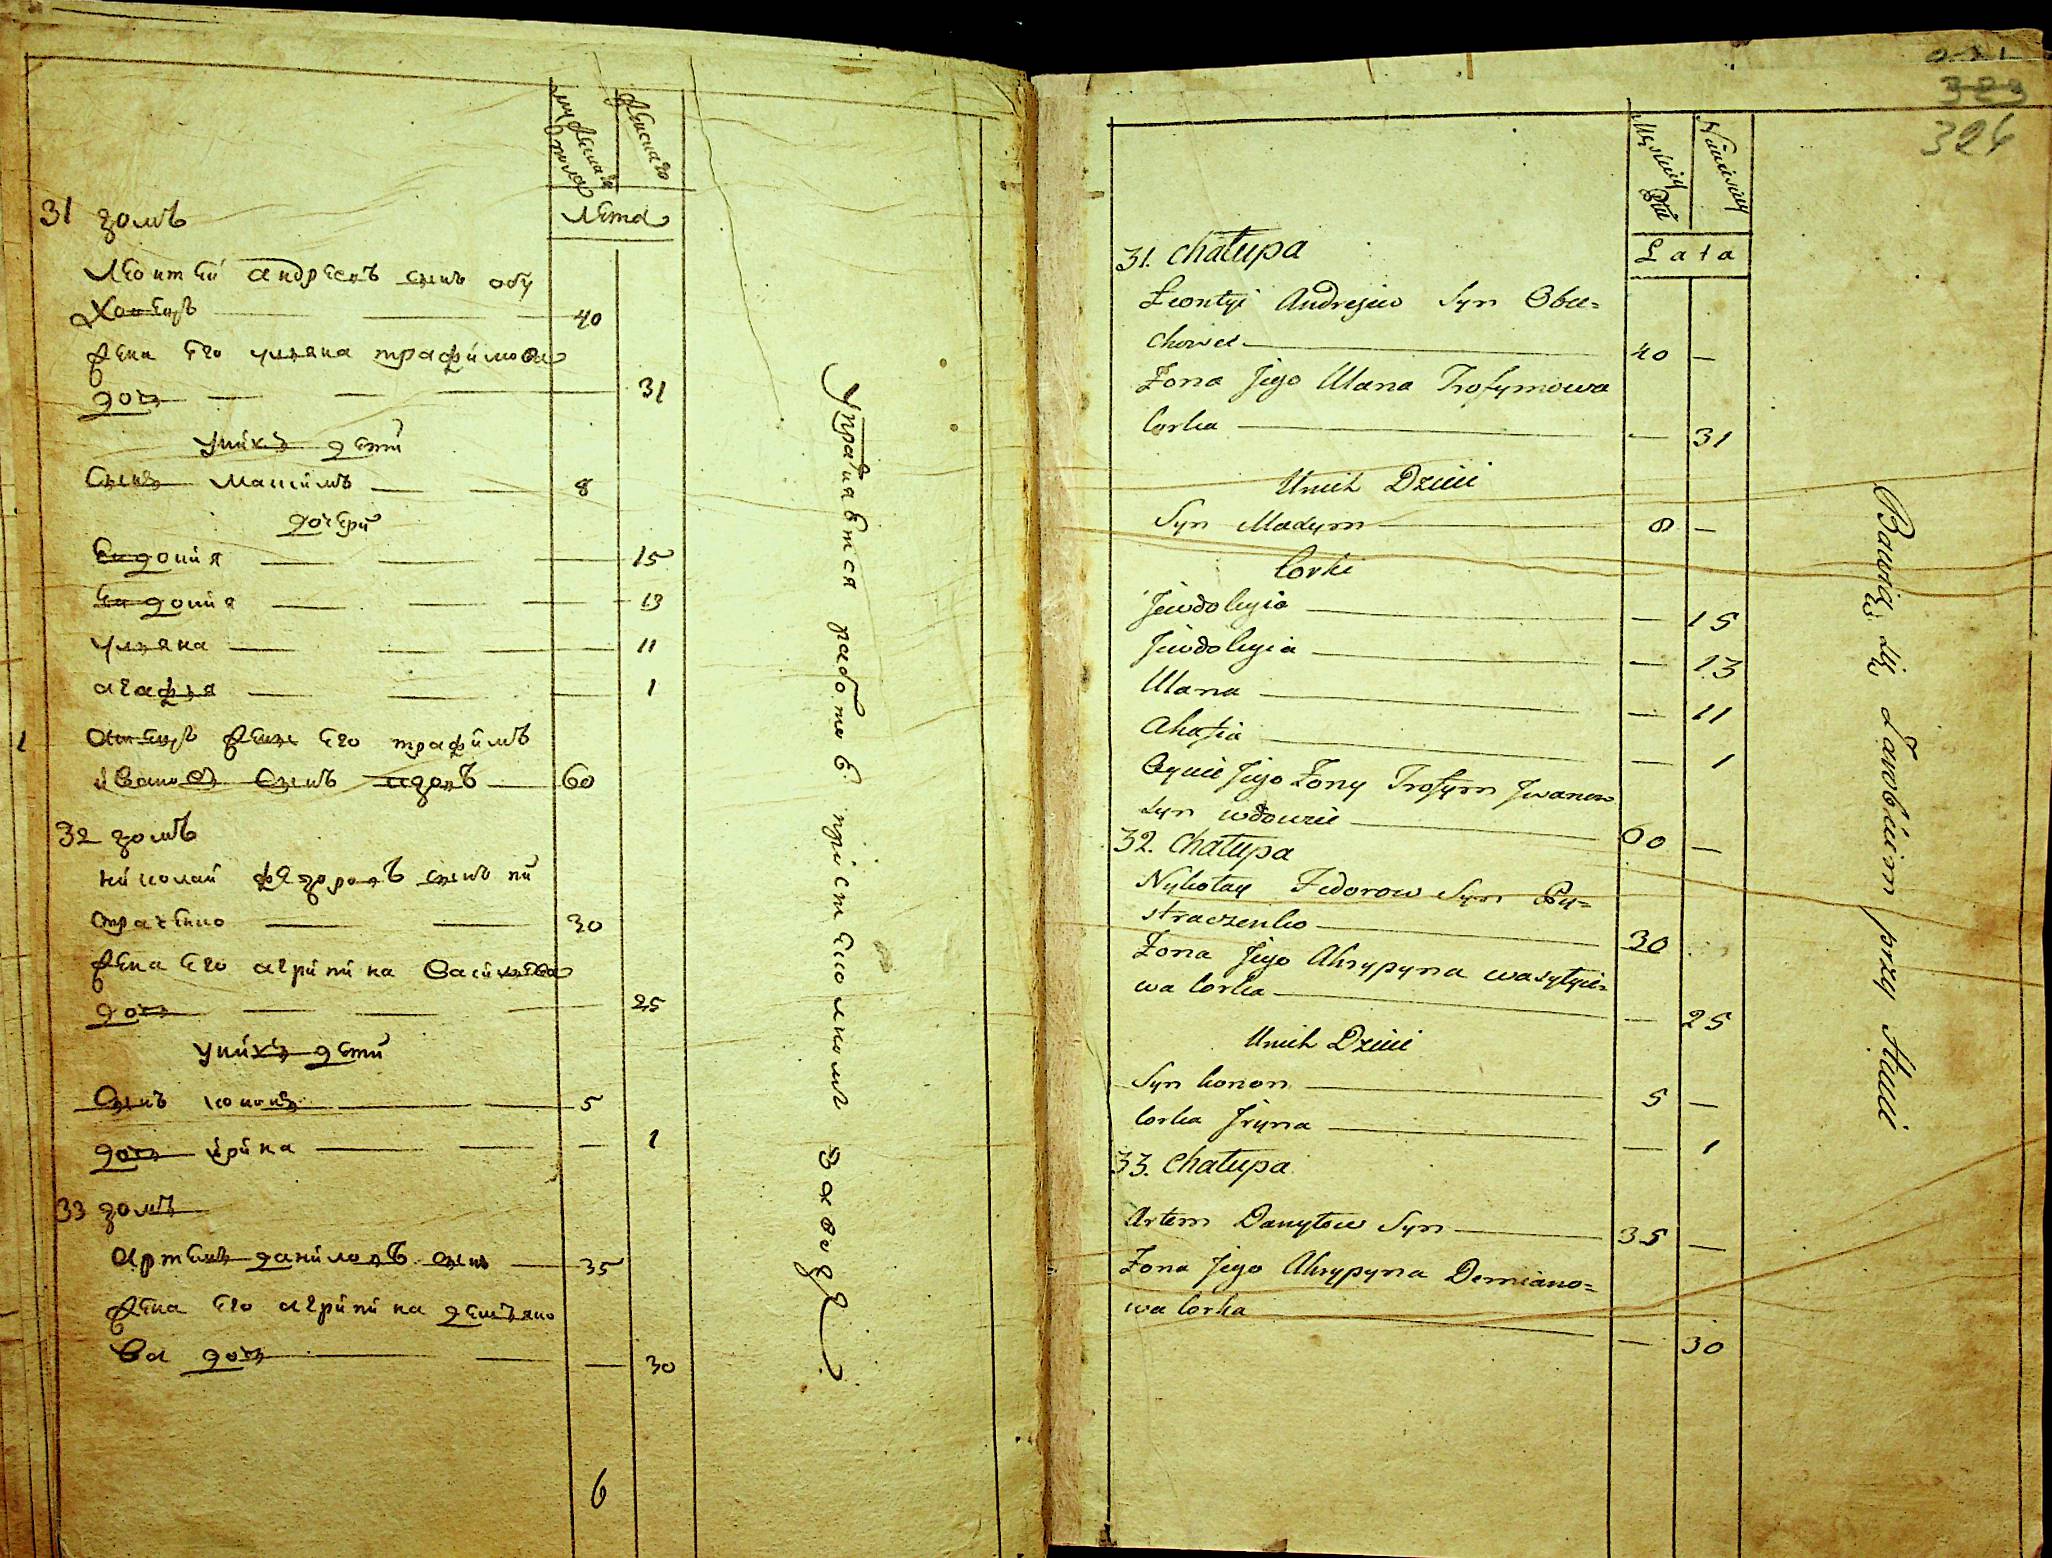 31 домъ
Лета
Леонтей андреевъ сынъ обу
ховецъ 40
жена его уляна трафимова
дочь 31
у нихъ дети
Сынъ Максимъ 8
дочери
Евдокия 15
Евдокия 13
уляна 11
агафья 1
Отецъ жены его трафимъ
ивановъ Сынъ вдовъ 60
32 домъ
николай федоровъ сынъ пи
страченко 30
жена его агрипина Василева
дочь 25
у нихъ дети
Сынъ кононъ 5
дочь ирина 1
33 домъ
Артемъ даниловъ сынъ 35
жена его агрипина демьяно
ва дочь 30
6
Упражняется работою при стекольномъ заводе
323
326
Męskiey Płci
Lata
31. Chałupa
Leontyi Andrejew Syn Obu=
chowec 40 —
Żona Jego Ulana Trofymowa
Corka — 31
U nich Dzieci
Syn Maxym 8 —
Corki
Jewdokyia — 15
Jewdokyia — 13
Ulana — 11
Ahafia — 1
Oyciec Jego Żony Trofym Jwanow
Syn wdowiec 60 —
32. Chałupa
Nykołay Fedorow Syn Py=
straczenko 30
Żona Jego Ahrypyna wasyłyie=
wa Corka — 25
U nich Dzieci
Syn konon 5 —
Corka Jryna — 1
33. Chałupa
Artem Danyłow Syn 35 —
Żona Jego Ahrypyna Demiano=
wa Corka — 30
Bawią się Zarobkiem przy Hucie